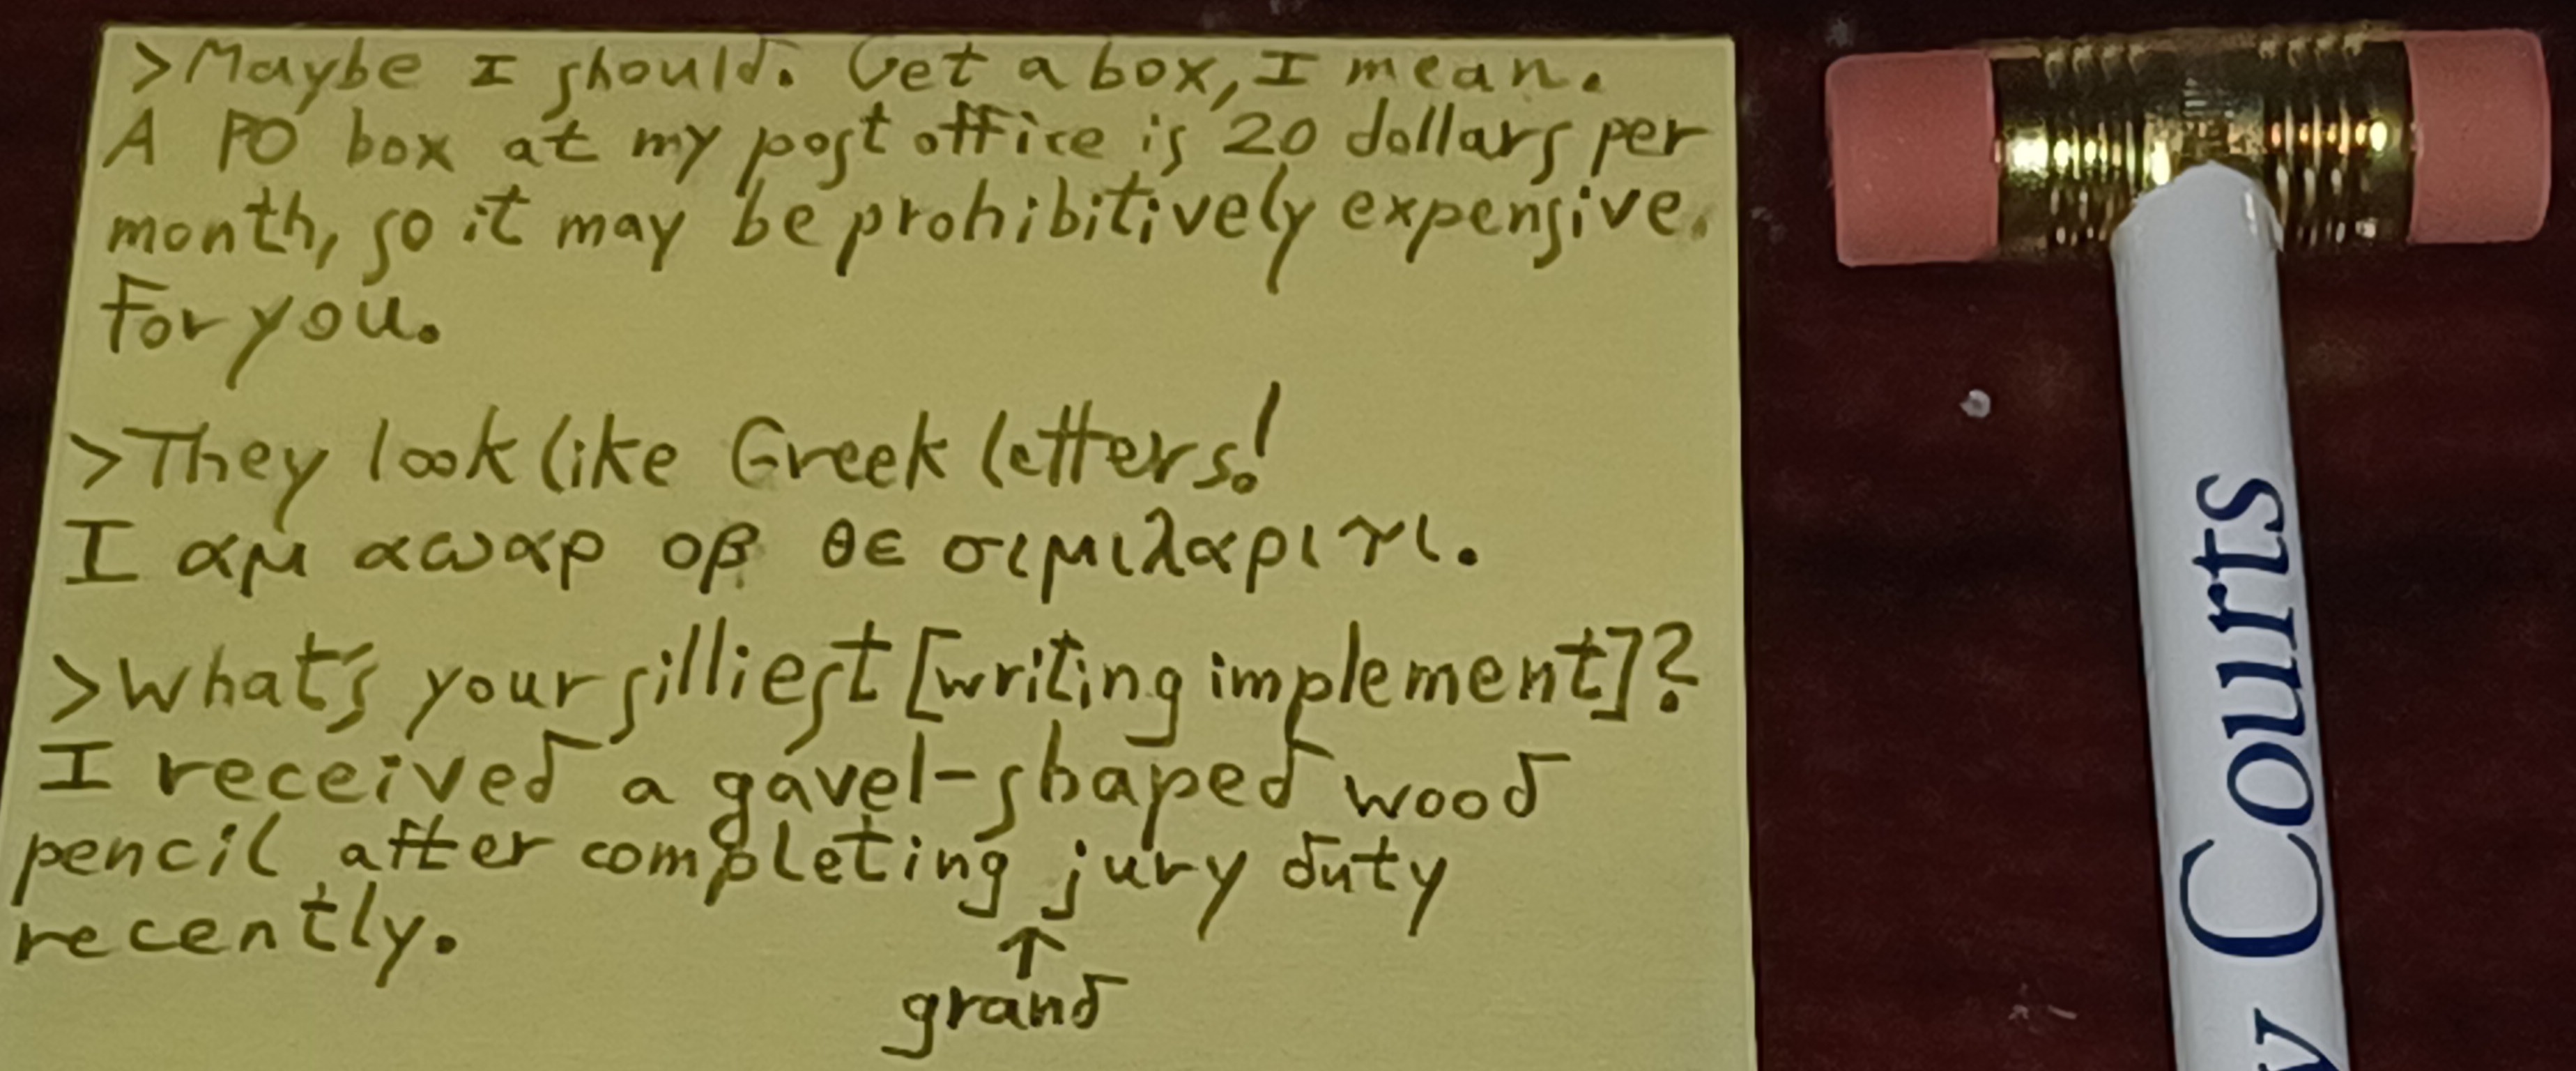 >Maybe I should. Get a box, I mean.
A PO box at my post office is 20 dollars per
month, so it may be prohibitively expensive.
For you.
>They look like Greek letters!
I αμ αωαρ οβ θε σιμιλαριτι.
>What's your silliest [writing implement]?
I received a gavel-shaped wood
pencil after completing jury duty
recently.
↑
grand
y Courts